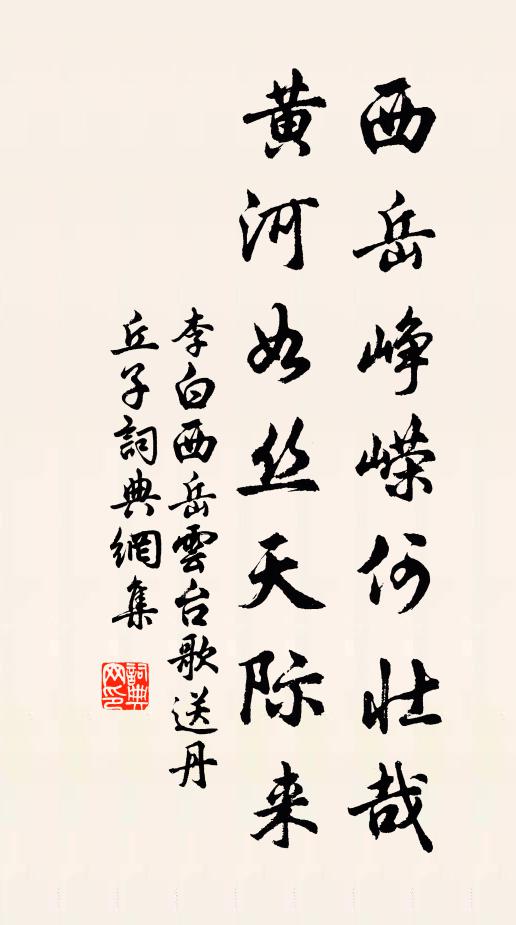 西岳峥嵘何壮哉
黄河如丝天际来
李白西岳雲台歌送丹
丘子詞典網集
詞典
网印